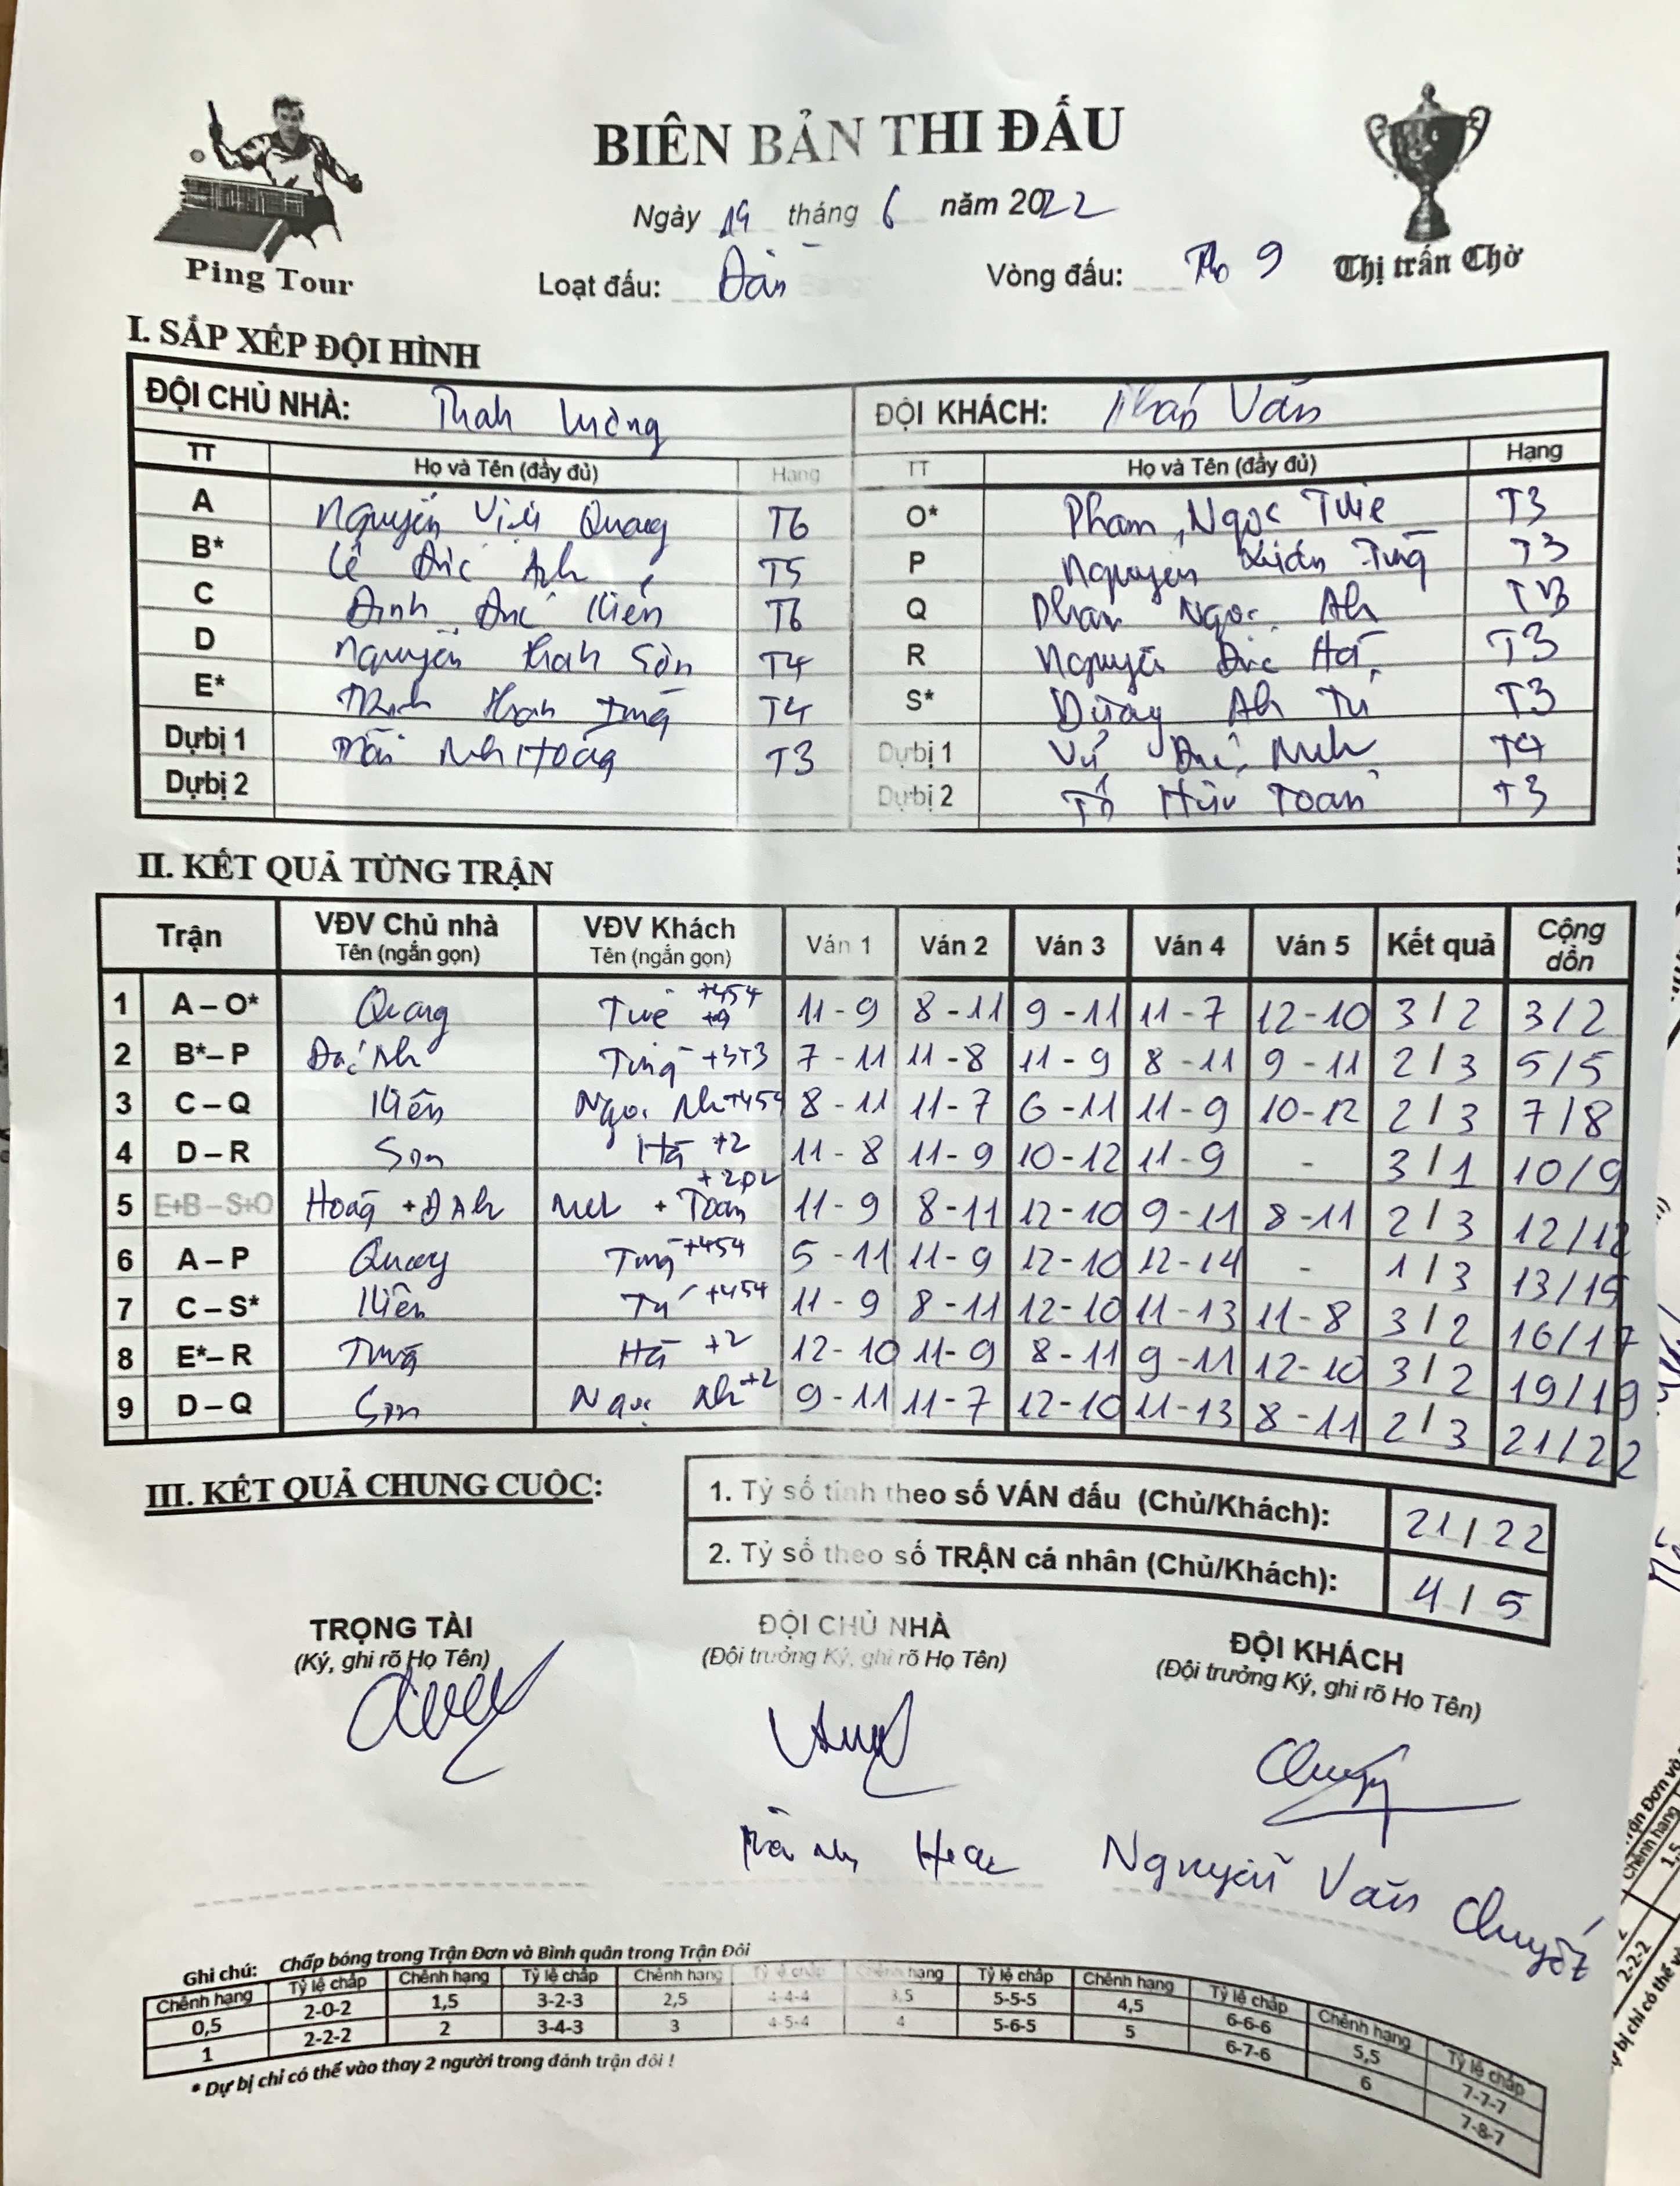 BIÊN BẢN THI ĐẤU
Ngày 19 tháng 6 năm 2022
Ping Tour
Loạt đấu:
Vòng đấu: 9
Thị trấn Chờ
I. SẮP XẾP ĐỘI HÌNH
ĐỘI CHỦ NHÀ: ĐỘI KHÁCH: Văn
TT Họ và Tên (đầy đủ) Hạng TT Họ và Tên (đầy đủ) Hạng
A Nguyễn Việt Quang T6 O* Phạm Ngọc Tuệ T3
B* Lê Đức Anh T5 P Nguyễn Xuân Tùng T3
C Đinh Đức Kiên T6 Q Phạm Ngọc Ah T3
D Nguyễn Thah Sơn T4 R Nguyễn Đức Hà T3
E* Tùng T4 S* Dương Ah Tú T3
Dự bị 1 Hoàng T3 Dự bị 1 Vũ Đức Mih T4
Dự bị 2 Dự bị 2 Tô Hữu Toàn T3
II. KẾT QUẢ TỪNG TRẬN
Trận VĐV Chủ nhà Tên (ngắn gọn) VĐV Khách Tên (ngắn gọn) Ván 1 Ván 2 Ván 3 Ván 4 Ván 5 Kết quả Cộng dồn
1 A – O* Quang Tuệ +454 11 - 9 8 - 11 9 - 11 11 - 7 12 - 10 3 / 2 3 / 2
2 B* – P Đức Ah Tùng +3T3 7 - 11 11 - 8 11 - 9 8 - 11 9 - 11 2 / 3 5 / 5
3 C – Q Kiên Ngọc Ah +454 8 - 11 11 - 7 6 - 11 11 - 9 10 - 12 2 / 3 7 / 8
4 D – R Sơn Hà +2 11 - 8 11 - 9 10 - 12 11 - 9 - 3 / 1 10 / 9
5 E+B – S+O Hoàng + Đ Ah Mih + Toàn +202 11 - 9 8 - 11 12 - 10 9 - 11 8 - 11 2 / 3 12 / 12
6 A – P Quang Tùng +454 5 - 11 11 - 9 12 - 10 12 - 14 - 1 / 3 13 / 15
7 C – S* Kiên Tú +454 11 - 9 8 - 11 12 - 10 11 - 13 11 - 8 3 / 2 16 / 17
8 E* – R Tùng Hà +2 12 - 10 11 - 9 8 - 11 9 - 11 12 - 10 3 / 2 19 / 19
9 D – Q Sơn Ngọc Ah +2 9 - 11 11 - 7 12 - 10 11 - 13 8 - 11 2 / 3 21 / 22
III. KẾT QUẢ CHUNG CUỘC:
1. Tỷ số tính theo số VÁN đấu (Chủ/Khách): 21 / 22
2. Tỷ số theo số TRẬN cá nhân (Chủ/Khách): 4 / 5
TRỌNG TÀI ĐỘI CHỦ NHÀ ĐỘI KHÁCH
(Ký, ghi rõ Họ Tên) (Đội trưởng Ký, ghi rõ Họ Tên) (Đội trưởng Ký, ghi rõ Họ Tên)
Nguyễn Văn
Ghi chú: Chấp bóng trong Trận Đơn và Bình quân trong Trận Đôi
Chênh hạng Tỷ lệ chấp Chênh hạng Tỷ lệ chấp Chênh hạng Tỷ lệ chấp Chênh hạng Tỷ lệ chấp Chênh hạng Tỷ lệ chấp Chênh hạng Tỷ lệ chấp
0,5 2-0-2 1,5 3-2-3 2,5 4-4-4 3,5 5-5-5 4,5 6-6-6 5,5 7-7-7
1 2-2-2 2 3-4-3 3 4-5-4 4 5-6-5 5 6-7-6 6 7-8-7
* Dự bị chỉ có thể vào thay 2 người trong đánh trận đôi !